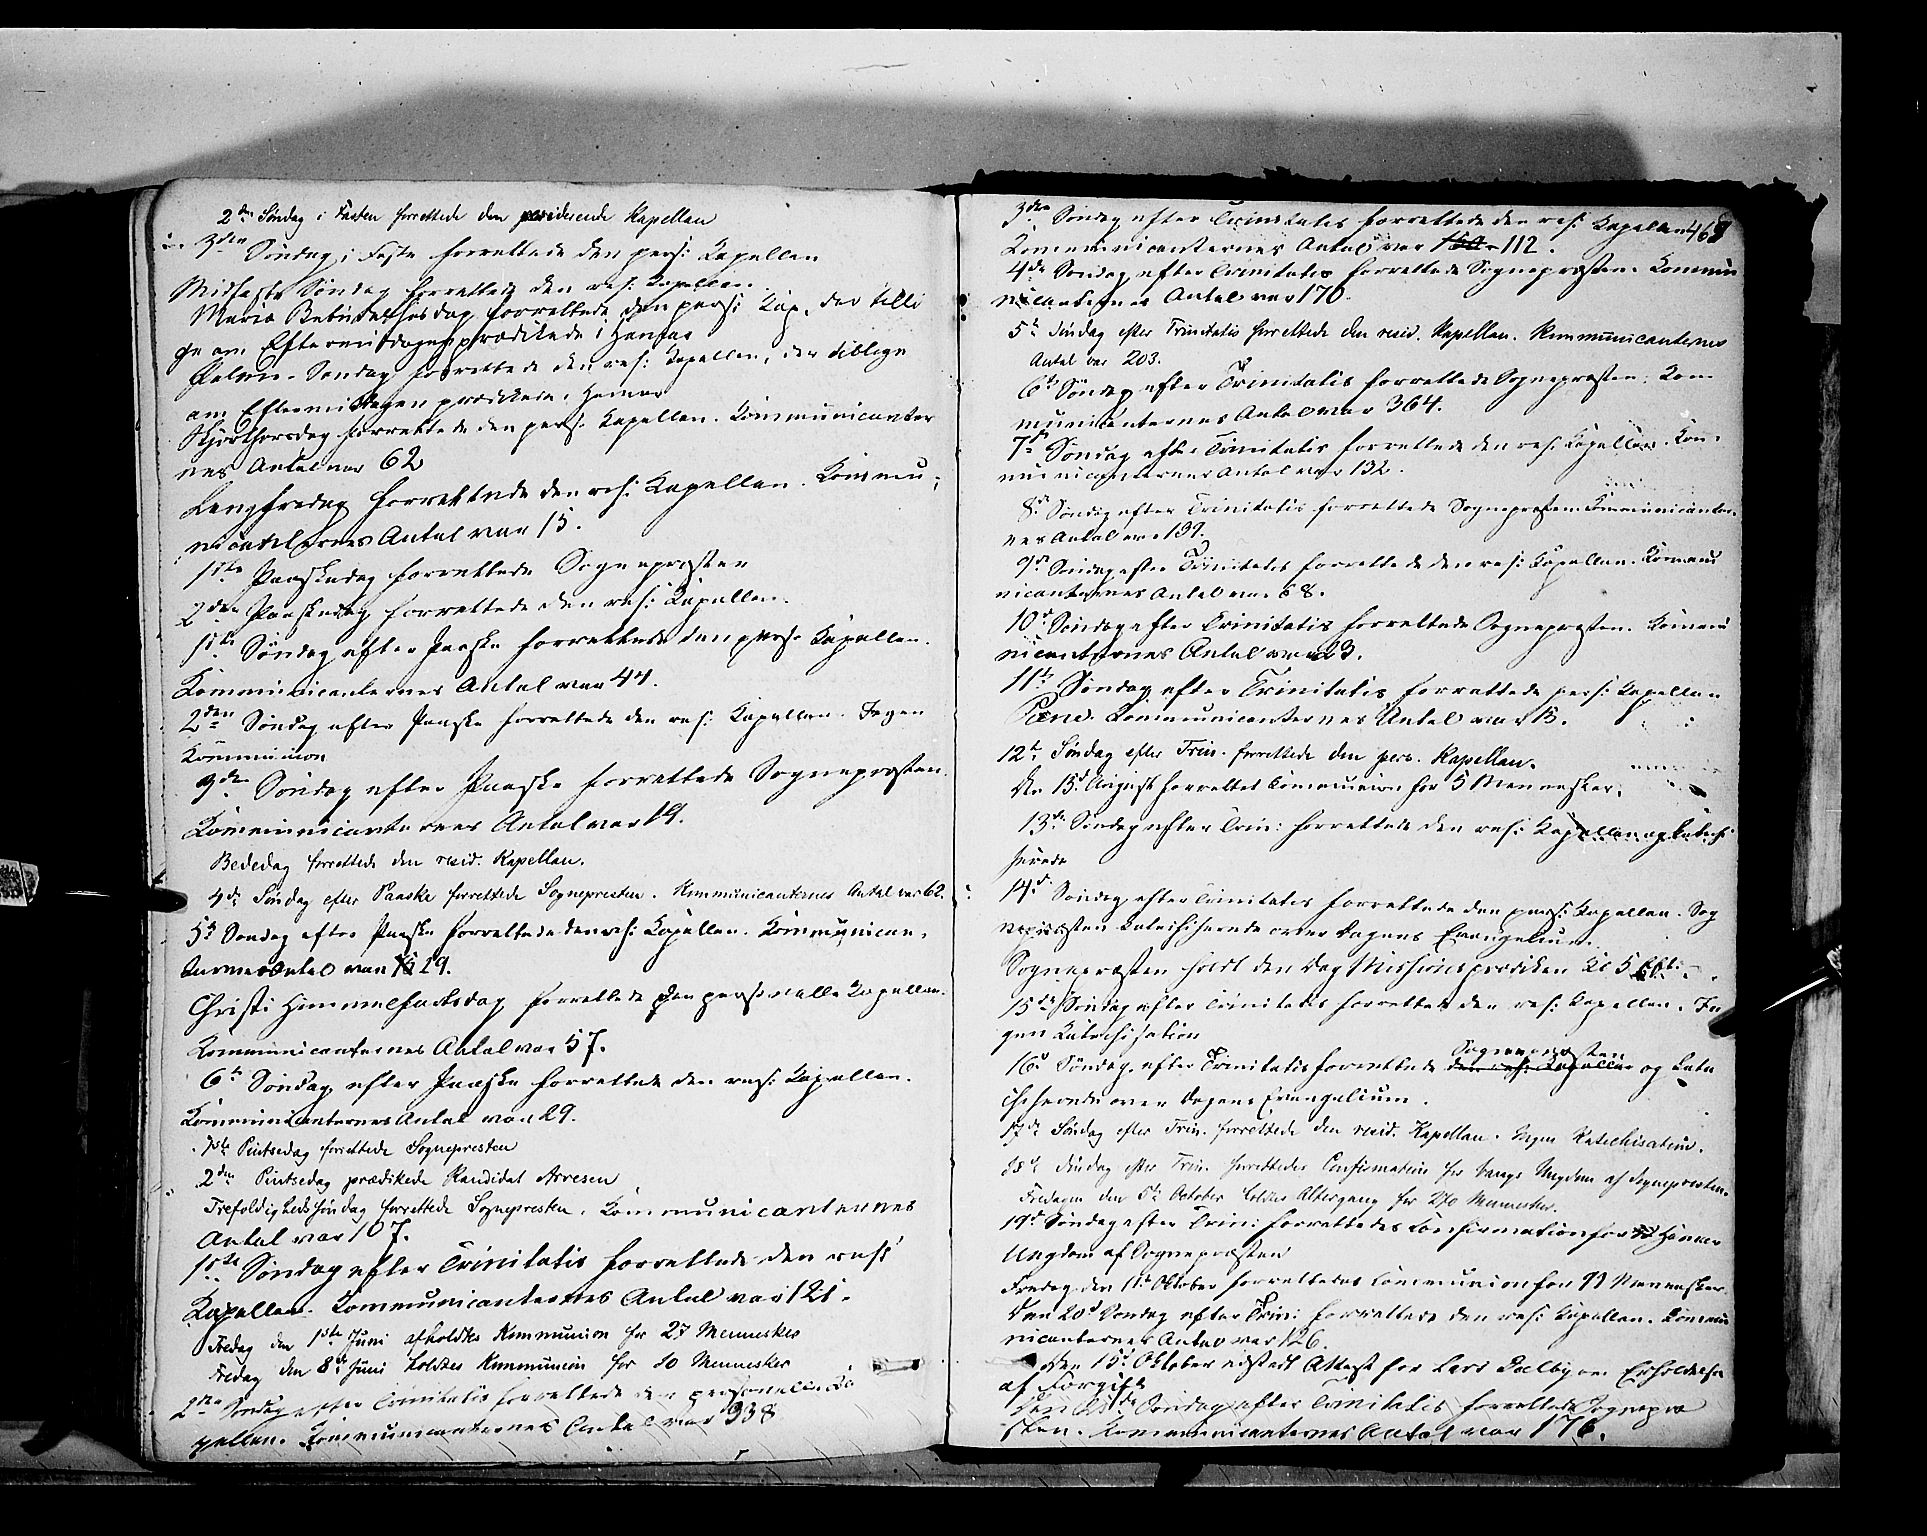 2den Søndag i Fasten forrettede den residerende Kapellan
3den Søndag i Faste forrettede den pers: Kapellan
Midfaste Søndag forrettede den res: Kapellan.
Mariæ Bebudelsesdag forrettede den pers: Kap. der tilli
ge om Eftermiddagen prædikede i Hamar
Palme-Søndag forrettede den res: Kapellan, der tillige
om Eftermiddagen prædikede i Hamar
Skjærthorsdag forrettede den pers: Kapellan. Kommunicanter
nes Antal var 62
Langfredag forrettede den res: Kapellan. Kommu-
nicanternes Antal var 15.
1ste Paaskedag forrettede Sognepræsten
2den Paaskedag forrettede den res: Kapellan.
1ste Søndag efter Paaske forrettede den pers: Kapellan.
Kommunicanternes Antal var 44.
2den Søndag efter Paaske forrettede den res: Kapellan. Ingen
Kommunion
3den Søndag efter Paaske forrettede Sognepræsten.
Kommunicanternes Antal var 14.
Bededag forrettede den resid. Kapellan.
4de Søndag efter Paaske forrettede Sognepresten. Kommunicanternes Antal var 62.
5te Søndag efter Paaske forrettede den res: Kapellan. Kommunican-
ternes Antal var 29.
Christi Himmelfartsdag forrettede den personelle Kapellan.
Kommunicanternes Antal var 57.
6te Søndag efter Paaske forrettede den res: Kapellan.
Kommunicanternes Antal var 29.
1ste Pintsedag forrettede Sognepresten
2den Pintsedag prædikede Kandidat Arvesen
Trefoldighedssøndag forrettede Sognepresten. Kommunicanternes
Antal var 107.
1ste Søndag efter Trinitatis forrettede den res:
Kapellan. Kommunicanternes Antal var 121.
Fredag den 1ste Juni afholdtes Kommunion for 27 Mennesker
Fredag den 8de Juni holdtes Kommunion for 10 Mennesker
2den Søndag efter Trinitatis forrettede den personelle Ka
pellan. Kommunicanternes Antal var 338
468
3die Søndag efter Trinitatis forrettede den res: Kapellan
Kommunicanternes Antal var 112.
4de Søndag efter Trinitatis forrettede Sognepræsten. Kommu
nicanternes Antal var 170.
5te Søndag efter Trinitatis forrettede den resid. Kapellan. Kommunicanternes
Antal var 203.
6te Søndag efter Trinitatis forrettede Sognepræsten. Kom
municanternes Antal var 364.
7de Søndag efter Trinitatis forrettede den res: Kapellan. Kom-
municanternes Antal var 132.
8de Søndag efter Trinitatis forrettede Sognepræsten. Kommunicanter-
nes Antal var 139.
9de Søndag efter Trinitatis forrettede den res: Kapellan. Kommu
nicanternes Antal var 68.
10de Søndag efter Trinitatis forrettede Sognepræsten. Kommu
nicanternes Antal var 23.
11te Søndag efter Trinitatis forrettede pers: Kapellan
Kommunicanternes Antal var 13.
12te Søndag efter Trin. forrettede den pers. Kapellan.
Den 15de August forrettet Communion for 5 Mennesker.
13de Søndag efter Trin: forrettede den res: Kapellan og Katechi
serede
14de Søndag efter Trinitatis forrettede den pers: Kapellan. Sog
nepræsten Katechiserede over Dagens Evangelium.
Sognepræsten holdt den Dag Missionsprædiken Kl 5
15de Søndag efter Trinitatis forrettede den res: Kapellan. In
gen Katechisation
16de Søndag efter Trinitatis forrettede den res: Kapellan Sognepræsten og Kate
chiserede over Dagens Evangelium.
17de Søndag efter Trin. forrettede den resid. Kapellan. Ingen Katechisation.
18de Søndag efter Trin. forrettedes Confirmation for Vangs Ungdom af Sognepresten.
Fredagen den 5te October holdtes Altergang for 270 Mennesker.
19de Søndag efter Trin: forrettedes Confirmation for Hamar
Ungdom af Sognepræsten
Fredag den Oktober forrettedes Communion for 93 Mennesker
Den 20de Søndag efter Trin: forrettede den res: Kapellan. Kommu
nicanternes Antal var 126.
Den 15de Oktober udstedt Attest for Lars Dælby om Erholdelse
af Forgift
Den Søndag efter Trinitatis forrettede Sognepræ
sten. Kommunicanternes Antal var 176.